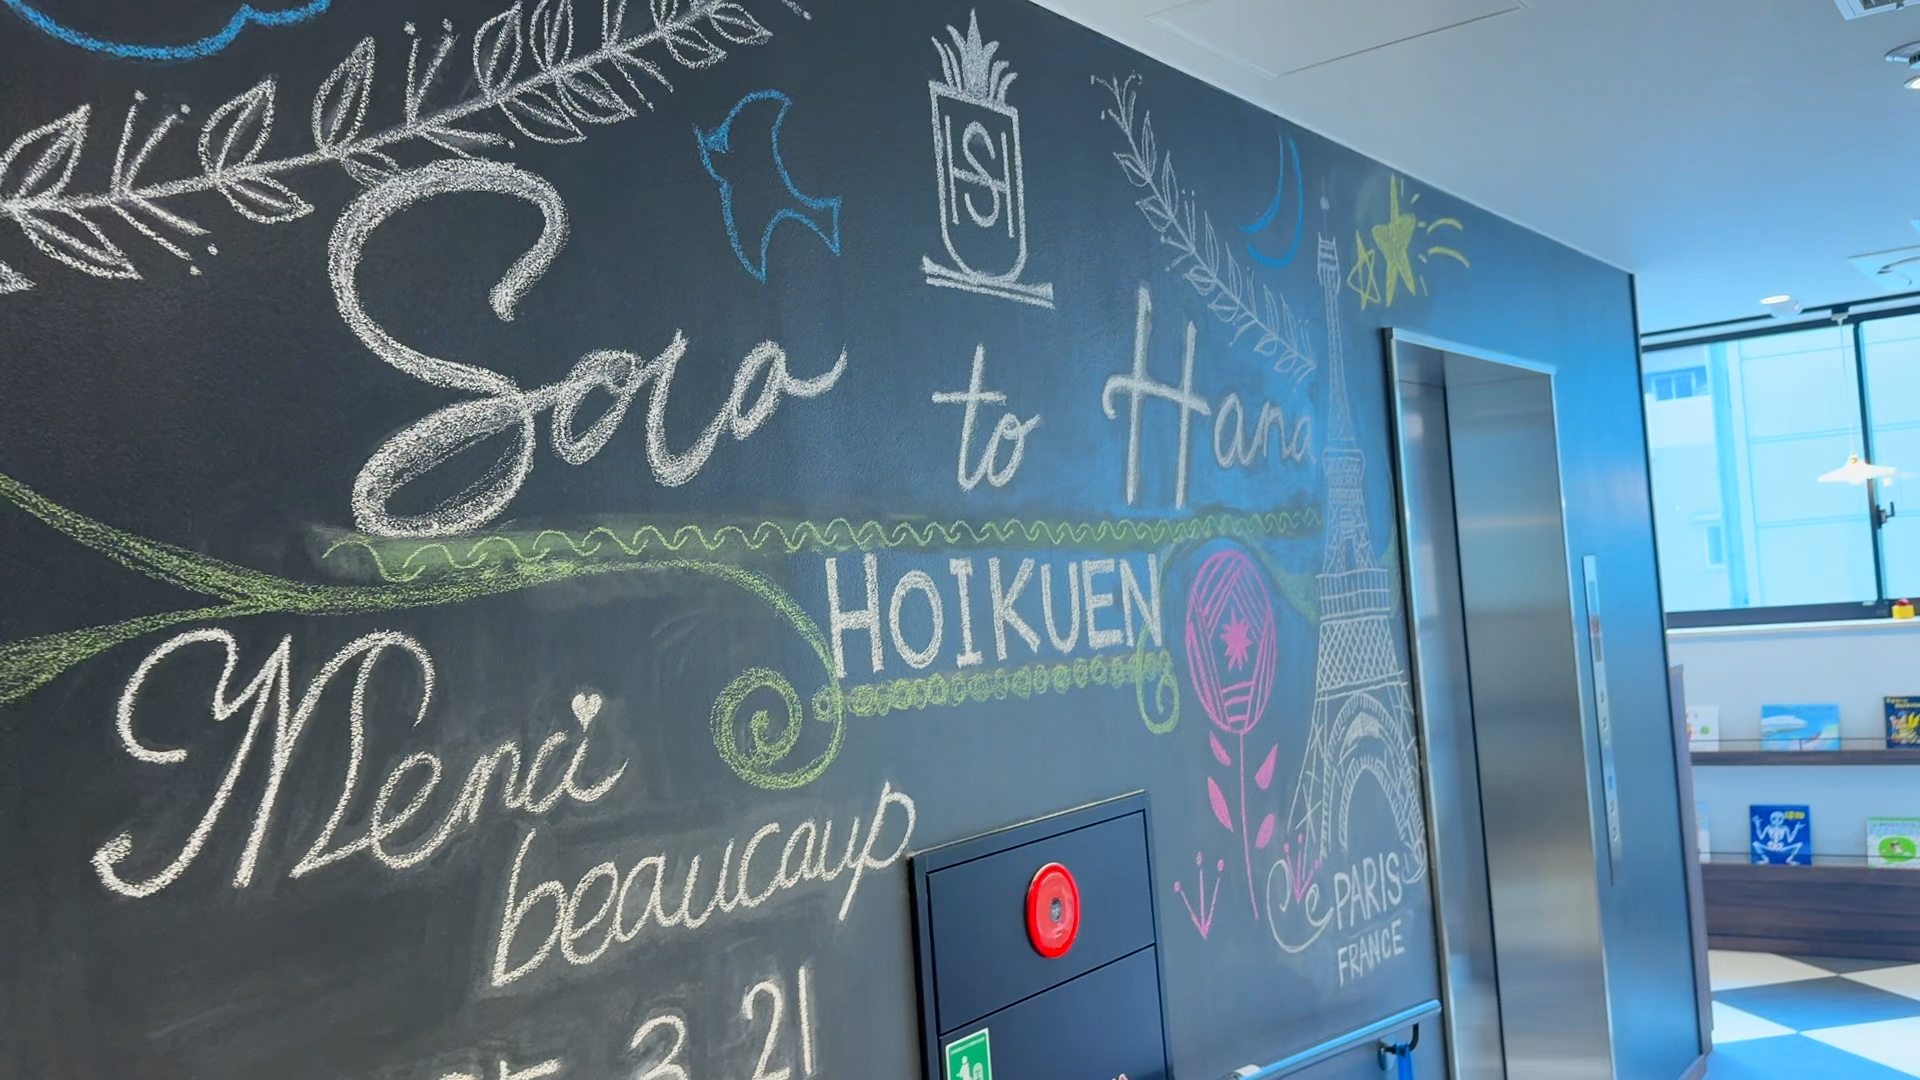 SH
Sora to Hana
HOIKUEN
Merci
beaucaup
3.21
PARIS
FRANCE